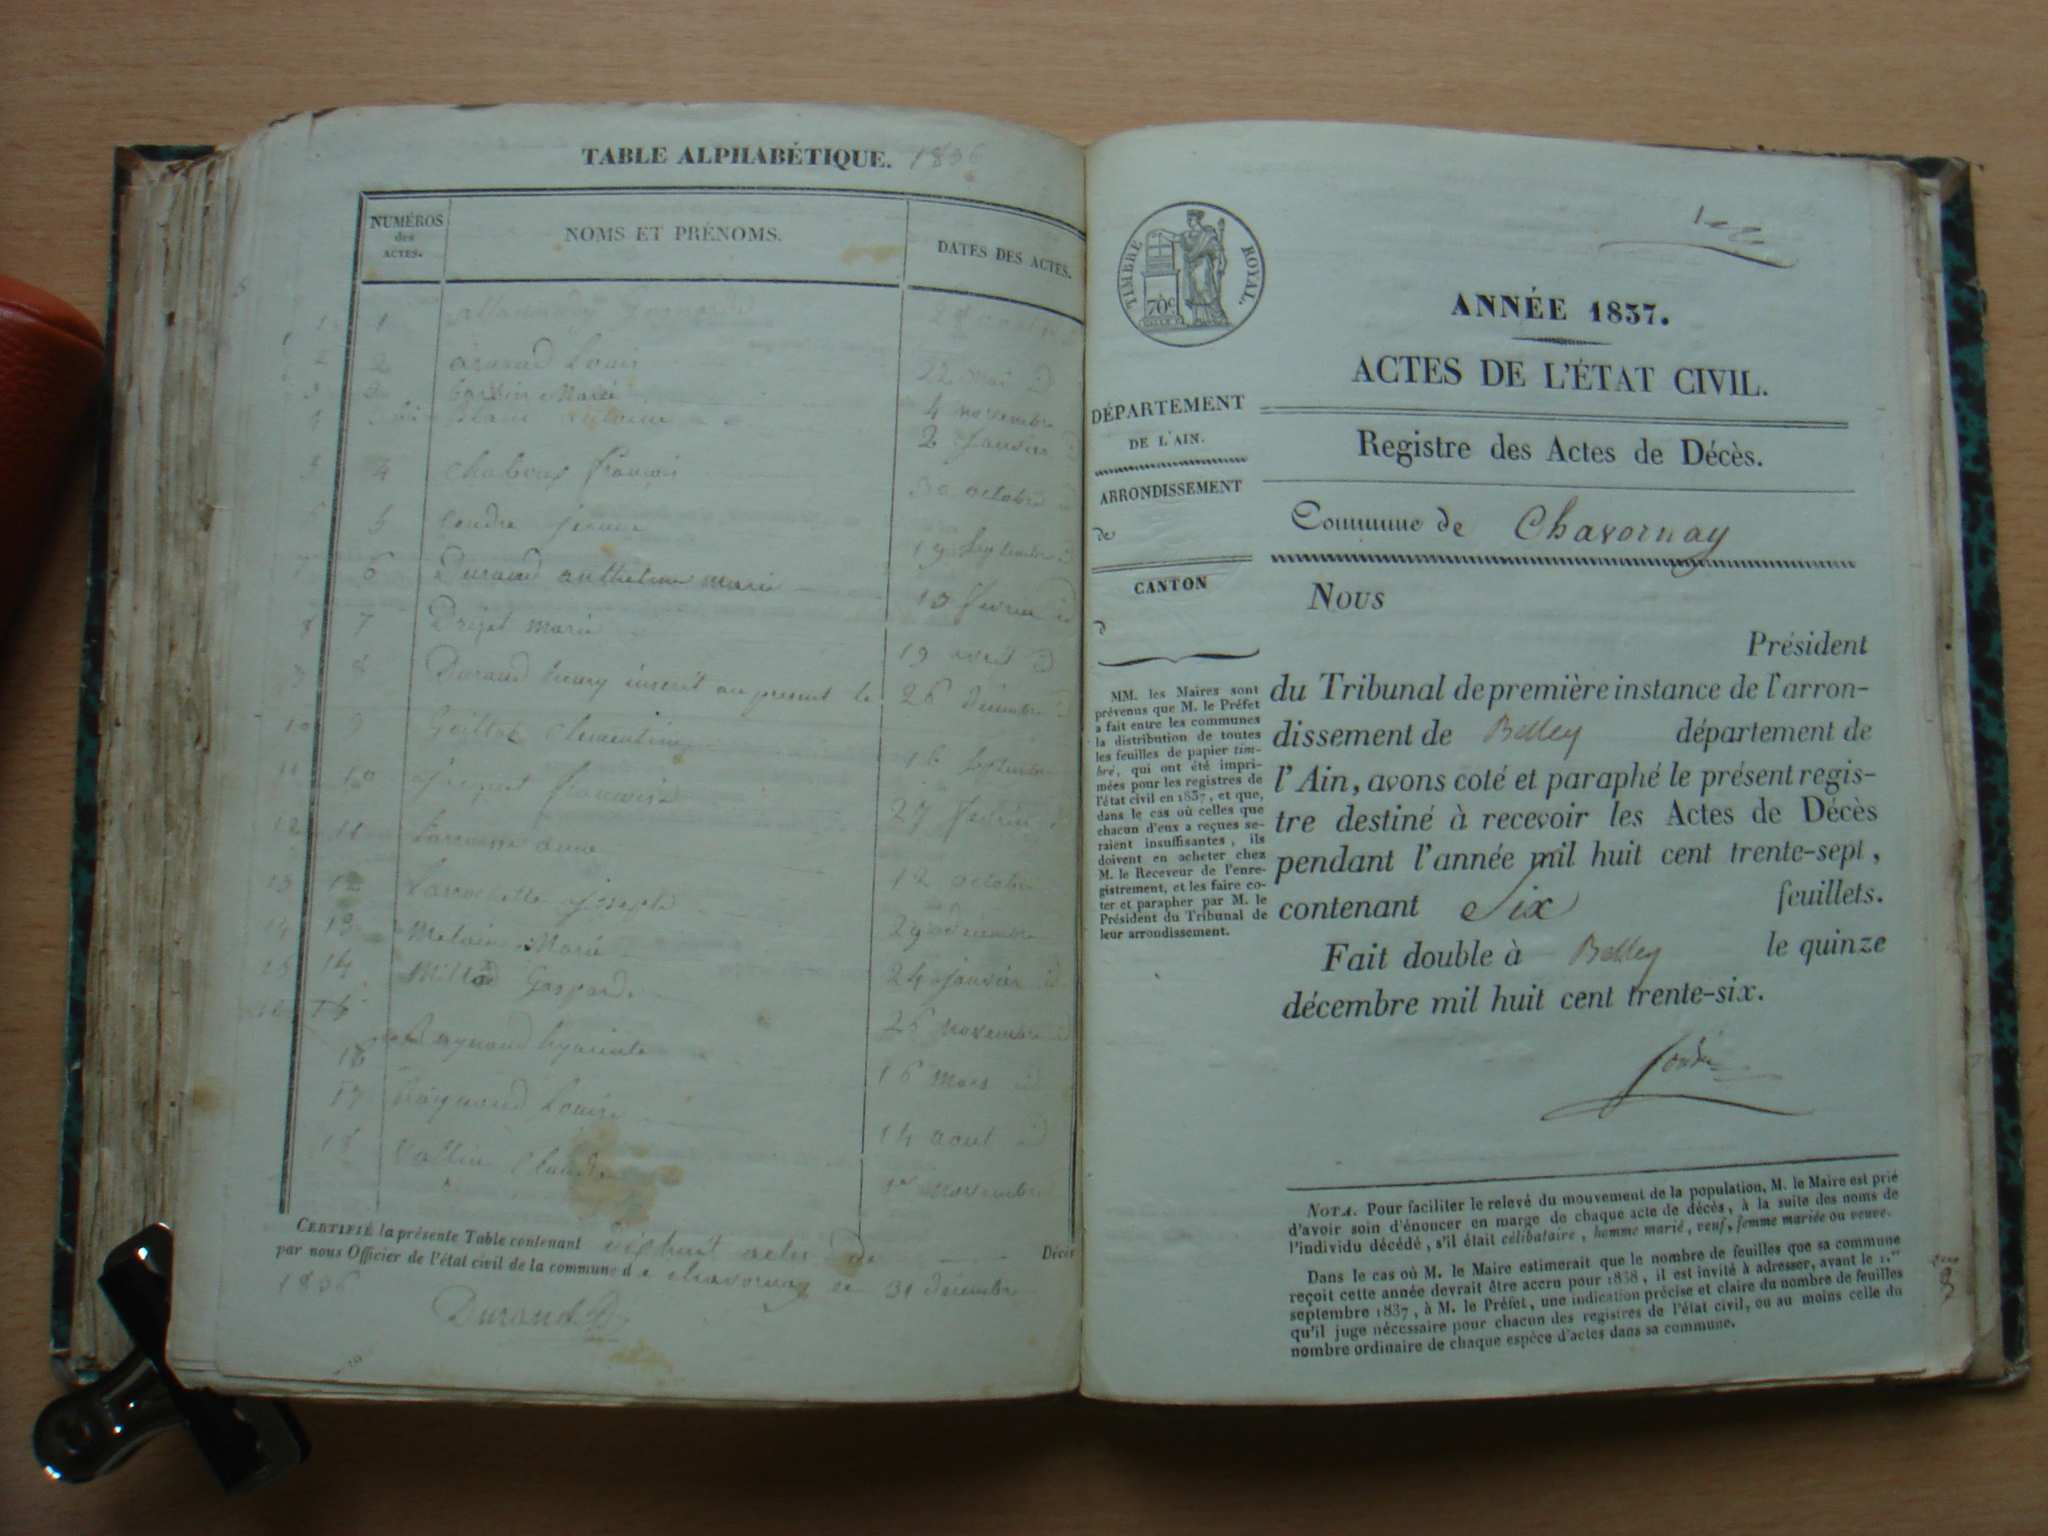 TABLE ALPHABÉTIQUE. 1836
NUMÉROS des ACTES. NOMS ET PRÉNOMS. DATES DES ACTES.
1
2 Louis 22 mai
Marie 4 novembre
2 Janvier
4 françois 30 octobre
5 19 Septembre
6 Durand anthelme marie 10 fevrier
7 marie 19 avril
8 Durand inscrit au présent le 26 décembre
9 Clementine 16 Septembre
10 françoise 27 fevrier
11 anne 12 octobre
12 Larochette joseph 29 décembre
13 Marie 24 janvier
14 Gaspard 25 novembre
Raynaud hyacinte 16 mars
17 Raynaud Louise 14 aout
18 Claude 1er novembre
CERTIFIÉ la présente Table contenant dixhuit actes de Décès
par nous Officier de l'état civil de la commune de Chavornay le 31 décembre
1836
Durand
TIMBRE ROYAL.
70c
ANNÉE 1837.
ACTES DE L'ÉTAT CIVIL.
Registre des Actes de Décès.
Commune de Chavornay
DÉPARTEMENT
DE L'AIN.
ARRONDISSEMENT
de
CANTON
d
MM. les Maires sont
prévenus que M. le Préfet
a fait entre les communes
la distribution de toutes
les feuilles de papier tim-
bré, qui ont été impri-
mées pour les registres de
l'état civil en 1837, et que,
dans le cas où celles que
chacun d'eux a reçues se-
raient insuffisantes, ils
doivent en acheter chez
M. le Receveur de l'enre-
gistrement, et les faire co-
ter et parapher par M. le
Président du Tribunal de
leur arrondissement.
Nous
Président
du Tribunal de première instance de l'arron-
dissement de Belley département de
l'Ain, avons coté et paraphé le présent regis-
tre destiné à recevoir les Actes de Décès
pendant l'année mil huit cent trente-sept,
contenant Six feuillets.
Fait double à Belley le quinze
décembre mil huit cent trente-six.
NOTA. Pour faciliter le relevé du mouvement de la population, M. le Maire est prié
d'avoir soin d'énoncer en marge de chaque acte de décès, à la suite des noms de
l'individu décédé, s'il était célibataire, homme marié, veuf, femme mariée ou veuve.
Dans le cas où M. le Maire estimerait que le nombre de feuilles que sa commune
reçoit cette année devrait être accru pour 1838, il est invité à adresser, avant le 1.er
septembre 1837, à M. le Préfet, une indication précise et claire du nombre de feuilles
qu'il juge nécessaire pour chacun des registres de l'état civil, ou au moins celle du
nombre ordinaire de chaque espèce d'actes dans sa commune.